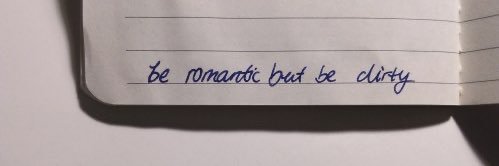 be romantic but be dirty